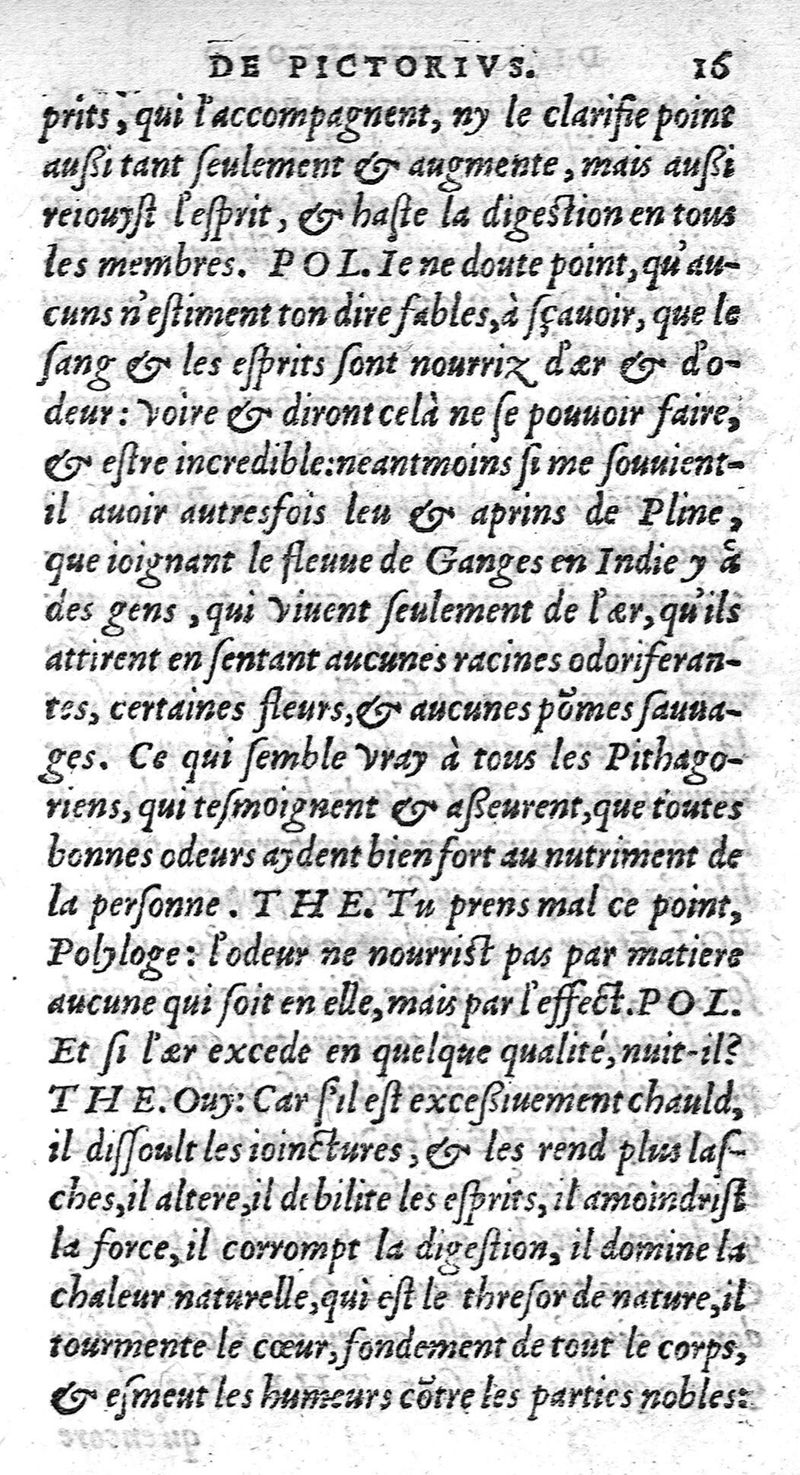 DE PICTORIVS. 16
prits, qui l'accompagnent, ny le clarifie point
außi tant ſeulement & augmente, mais außi
reiouyſt l'eſprit, & haſte la digeſtion en tous
les membres. POL. Ie ne doute point, qu'au-
cuns n'eſtiment ton dire fables, à ſçauoir, que le
ſang & les eſprits ſont nourriz d'ær & d'o-
deur: voire & diront celà ne ſe pouuoir faire,
& eſtre incredible: neantmoins ſi me ſouuient-
il auoir autresfois leu & aprins de Pline,
que ioignant le fleuue de Ganges en Indie y à
des gens, qui viuent ſeulement de l'ær, qu'ils
attirent en ſentant aucunes racines odoriferan-
tes, certaines fleurs, & aucunes põmes ſauua-
ges. Ce qui ſemble vray à tous les Pithago-
riens, qui teſmoignent & aßeurent, que toutes
bonnes odeurs aydent bien fort au nutriment de
la perſonne. THE. Tu prens mal ce point,
Polyloge: l'odeur ne nourriſt pas par matiere
aucune qui ſoit en elle, mais par l'effect. POL.
Et ſi l'ær excede en quelque qualité, nuit-il?
THE. Ouy: Car ſ'il eſt exceßiuement chauld,
il diſſoult les ioinctures, & les rend plus laſ-
ches, il altere, il debilite les eſprits, il amoindriſt
la force, il corrompt la digeſtion, il domine la
chaleur naturelle, qui eſt le threſor de nature, il
tourmente le cœur, fondement de tout le corps,
& eſmeut les humeurs cõtre les parties nobles: